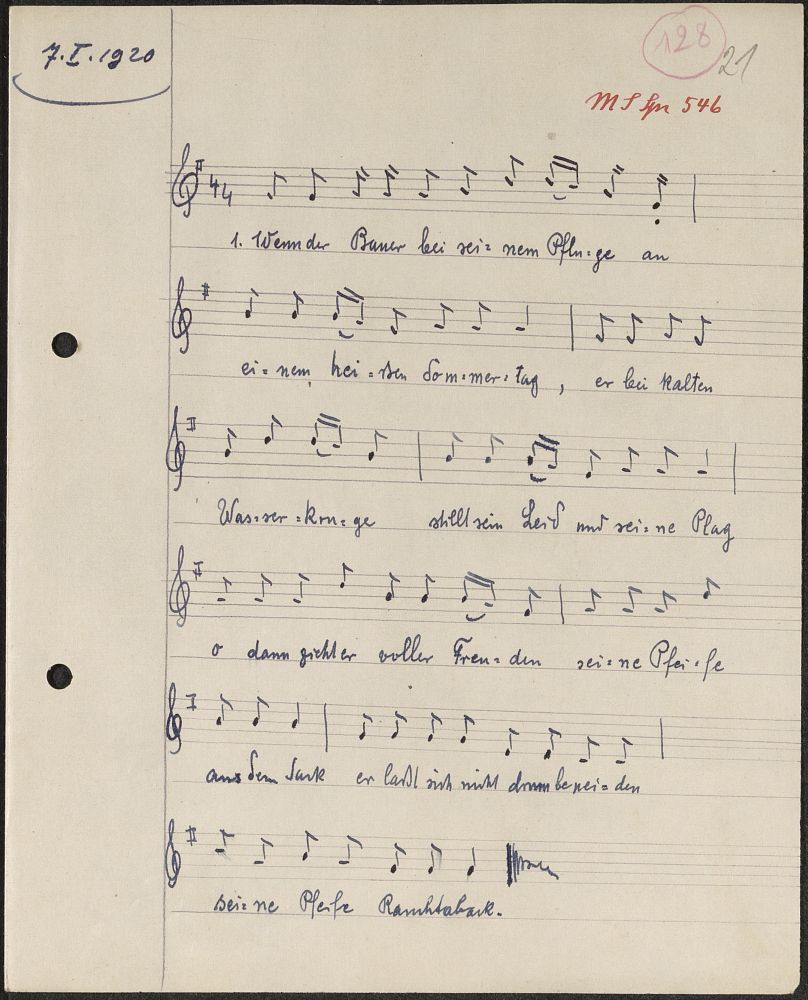 7.I.1920
128
21
MS Spr 546
1. Wenn der Bauer bei sei= nem Pflu=ge an
ei= nem hei= ßen Som=mer= tag, er bei kalten
Was=ser=kru=ge stillt sein Leid und sei=ne Plag
o dann zieht er voller Freu= den sei=ne Pfei=fe
aus dem Sack er laßt sich nicht drum benei= den
sei= ne Pfeife Rauchtabak.